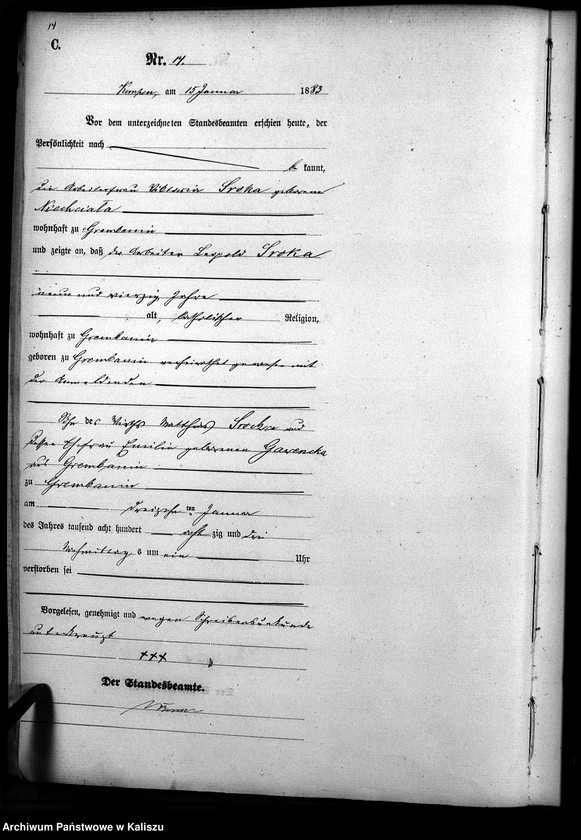 14
C.
Nr. 14.
Kempen, am 15 Januar 1883
Vor dem unterzeichneten Standesbeamten erschien heute, der
Persönlichkeit nach
be kannt,
die Arbeiterfrau Sroka geborene
Niechciała
wohnhaft zu Grembanin
und zeigte an, daß der Arbeiter Leopold Sroka
neun und vierzig Jahre
alt, katholischer Religion,
wohnhaft zu Grembanin
geboren zu Grembanin verheirathet gewesen mit
der Anmeldenden
Sohn des Wirths Mattheus und
dessen Ehefrau Emilie geborenen
aus Grembanin
zu Grembanin
am dreizehn ten Januar
des Jahres tausend acht hundert acht zig und drei
Nachmittag s um ein Uhr
verstorben sei
Vorgelesen, genehmigt und wegen Schreibensunkunde
unterkreuzt
+++
Der Standesbeamte.
Archiwum Państwowe w Kaliszu